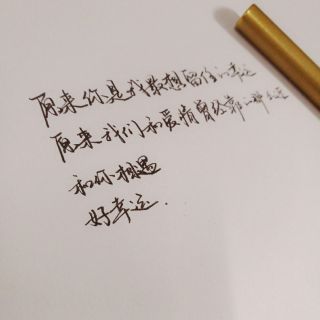 原来你是我最想留住的幸运
原来我们和爱情曾经靠那么近
和你相遇
好幸运.